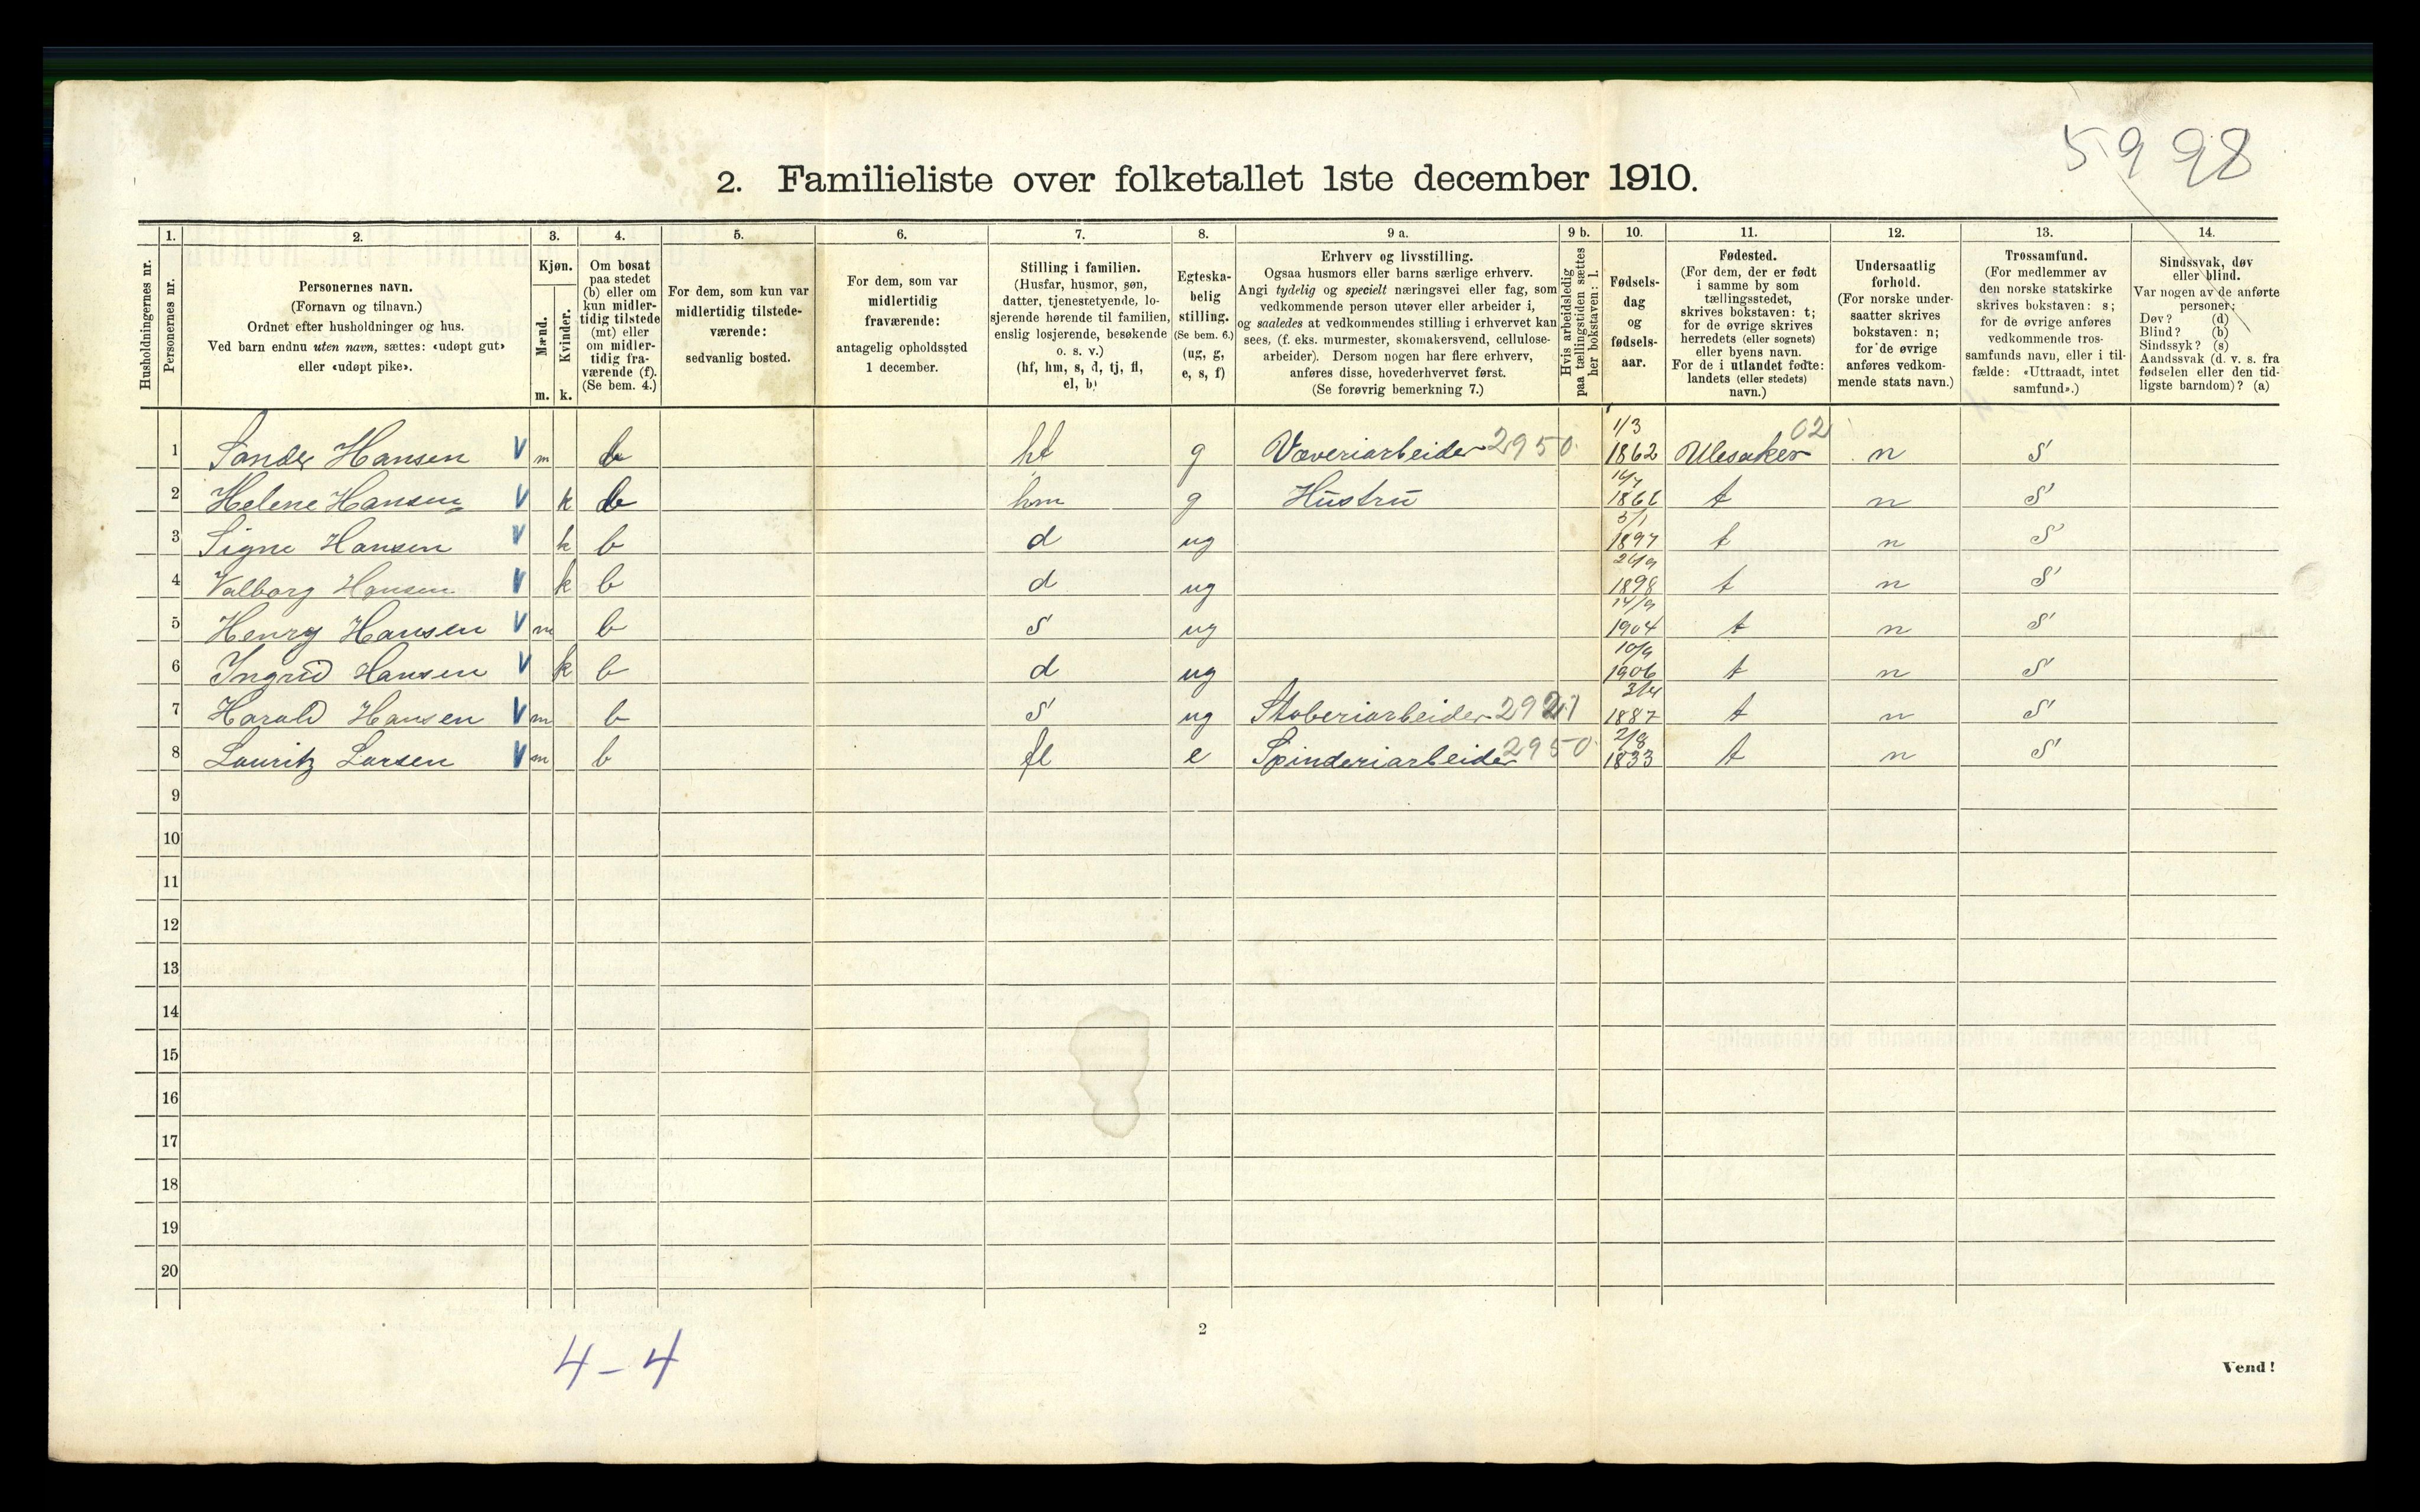 5998
2. Familieliste over folketallet 1ste december 1910.
1. 2. 3. 4. 5. 6. 7. 8. 9 a. 9 b. 10. 11. 12. 13. 14.
Husholdningernes nr.
Personernes nr.
Personernes navn.
(Fornavn og tilnavn.)
Ordnet efter husholdninger og hus.
Ved barn endnu uten navn, sættes: «udøpt gut»
eller «udøpt pike».
Kjøn.
Mænd.
Kvinder.
m. k.
Om bosat
paa stedet
(b) eller om
kun midler-
tidig tilstede
(mt) eller
om midler-
tidig fra-
værende (f).
(Se bem. 4.)
For dem, som kun var
midlertidig tilstede-
værende:
sedvanlig bosted.
For dem, som var
midlertidig
fraværende:
antagelig opholdssted
1 december.
Stilling i familien.
(Husfar, husmor, søn,
datter, tjenestetyende, lo-
sjerende hørende til familien,
enslig losjerende, besøkende
o. s. v.)
(hf, hm, s, d, tj, fl,
el, b)
Egteska-
belig
stilling.
(Se bem. 6.)
(ug, g,
e, s, f)
Erhverv og livsstilling.
Ogsaa husmors eller barns særlige erhverv.
Angi tydelig og specielt næringsvei eller fag, som
vedkommende person utøver eller arbeider i,
og saaledes at vedkommendes stilling i erhvervet kan
sees, (f. eks. murmester, skomakersvend, cellulose-
arbeider). Dersom nogen har flere erhverv,
anføres disse, hovederhvervet først.
(Se forøvrig bemerkning 7.)
Hvis arbeidsledig
paa tællingstiden sættes
her bokstaven: l.
Fødsels-
dag
og
fødsels-
aar.
Fødested.
(For dem, der er født
i samme by som
tællingsstedet,
skrives bokstaven: t;
for de øvrige skrives
herredets (eller sognets)
eller byens navn.
For de i utlandet fødte:
landets (eller stedets)
navn.)
Undersaatlig
forhold.
(For norske under-
saatter skrives
bokstaven: n;
for de øvrige
anføres vedkom-
mende stats navn.)
Trossamfund.
(For medlemmer av
den norske statskirke
skrives bokstaven: s;
for de øvrige anføres
vedkommende tros-
samfunds navn, eller i til-
fælde: «Uttraadt, intet
samfund».)
Sindssvak, døv
eller blind.
Var nogen av de anførte
personer:
Døv? (d)
Blind? (b)
Sindssyk? (s)
Aandssvak (d. v. s. fra
fødselen eller den tid-
ligste barndom)? (a)
1 Sander Hansen V m b hf g Væveriarbeider 2950 1/3 1862 Ulesaker 02 n S
2 Helene Hansen V k b hm g Hustru t n S
3 Signe Hansen V k b d ug 5/1 1897 t n S
4 Valborg Hansen V k b d ug 1898 t n S
5 Henry Hansen V m b s ug 14/9 1904 t n S
6 Ingrid Hansen V k b d ug 10/9 1906 t n S
7 Harald Hansen V m b s ug Støberiarbeider 3/4 1887 t n S
8 Lauritz Larsen V m b fl e Spinderiarbeider 2950 2/8 1833 t n S
9
10
11
12
13
14
15
16
17
18
19
20
2
4 - 4
Vend!